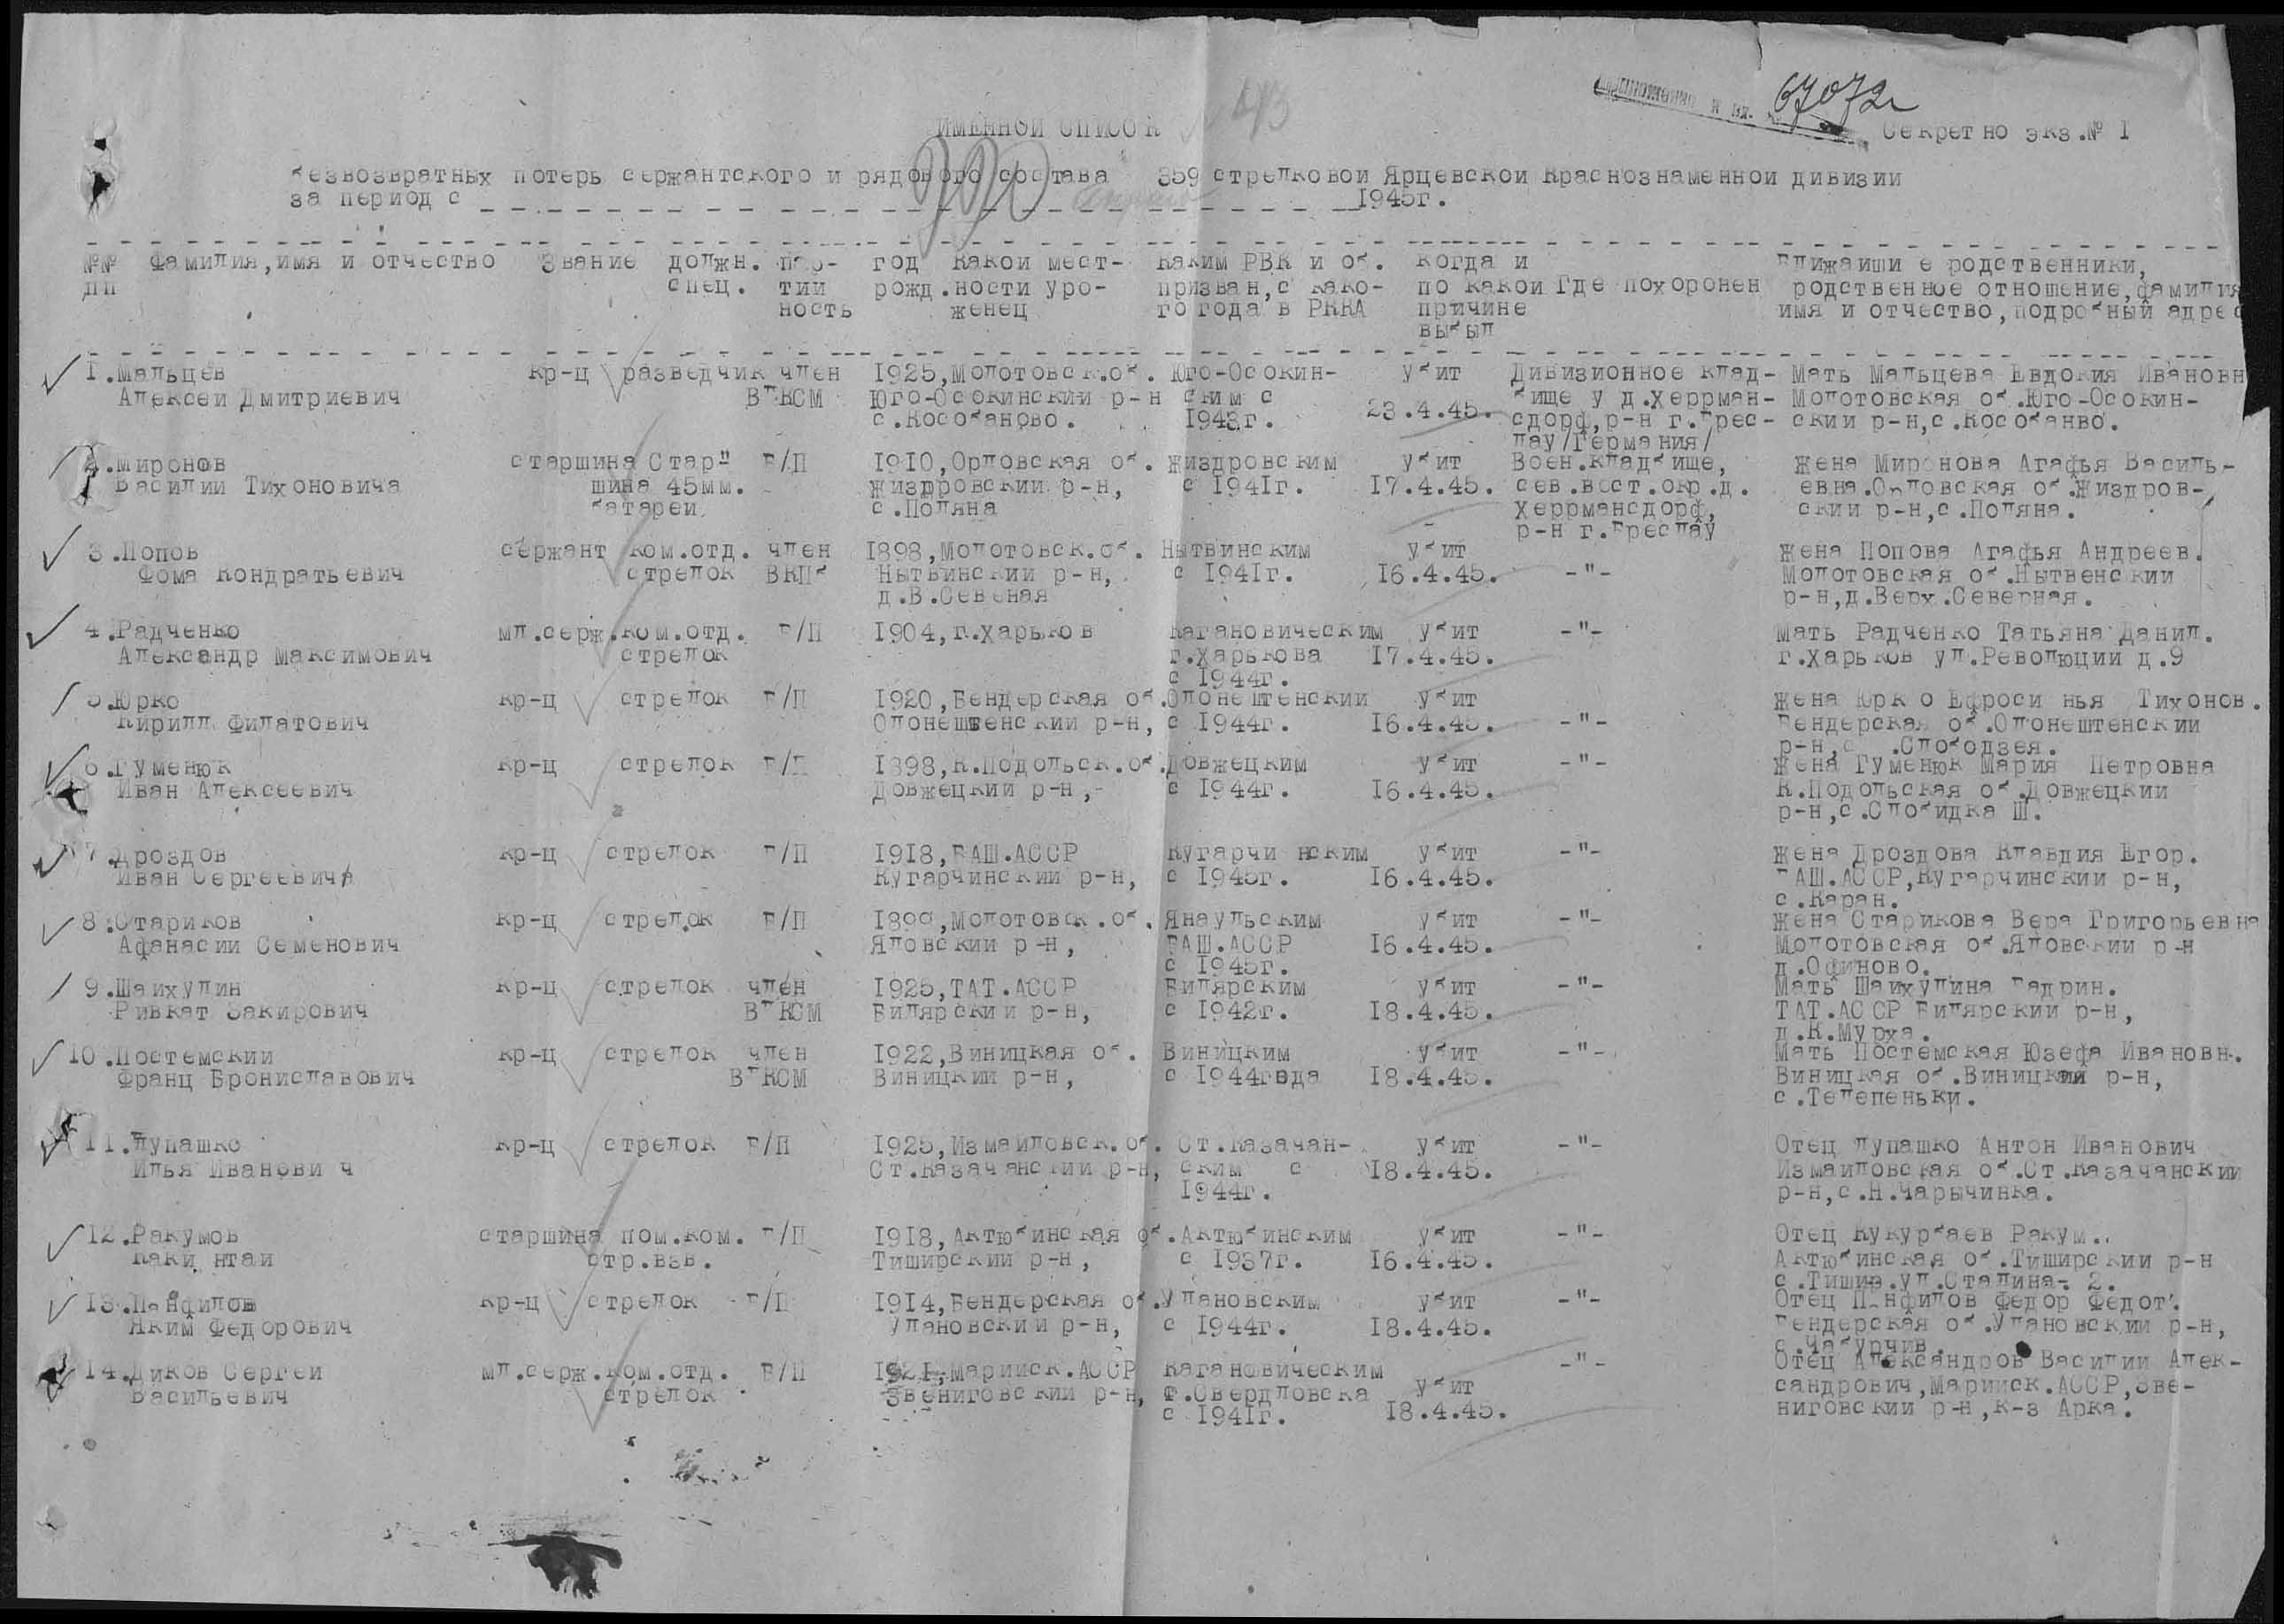 43
67072
Секретно экз.№ 1
ИМЕННОЙ СПИСОК
безвозвратных потерь сержантского и рядового состава 359 стрелковой Ярцевской Краснознаменной дивизии
за период с 1945г.
№№ Фамилия,имя и отчество Звание должн. пар- год какой мест- Каким РВК и об. когда и Ближайши е родственники,
пп спец. тий рожд.ности уро- призван,с како- по какой Где похоронен родственное отношение,фамилия
ность женец го года в РККА причине имя и отчество,подробный адрес
выбыл
1.Мальцев кр-ц разведчик член 1925,Молотовск.об. Юго-Осокин- убит Дивизионное клад- Мать Мальцева Евдокия Ивановн
Алексей Дмитриевич ВЛКСМ Юго-Осокинский р-н ским с 23.4.45. бище у д.Херрман- Молотовская об.Юго-Осокин-
с.Кособаново. 1943г. сдорф,р-н г.Брес- ский р-н,с.Кособанво.
лау/Германия/
2.Миронов старшина Стар- б/п 1910,Орловская об. Жиздровским убит Воен.кладбище, Жена Миронова Агафья Василь-
Василий Тихоновича шина 45мм. Жиздровский р-н, с 1941г. 17.4.45. сев.вост.окр.д. евна.Орловская об.Жиздров-
батареи с.Поляна Херрмансдорф, ский р-н,с.Поляна.
р-н г.Бреслау
3.Попов сержант ком.отд. член 1898,Молотовск.об. Нытвинским убит Жена Попова Агафья Андреев.
Фома Кондратьевич стрелок ВКПб Нытвинский р-н, с 1941г. 16.4.45. -"- Молотовская об.Нытвенский
д.В.Севеная р-н,д.Верх.Северная.
4.Радченко мл.серж.ком.отд. б/п 1904,г.Харьков Кагановическим убит -"- Мать Радченко Татьяна Данил.
Александр Максимович стрелок г.Харькова 17.4.45. г.Харьков ул.Революции д.9
с 1944г.
5.Юрко кр-ц стрелок б/п 1920,Бендерская об.Олонештенский убит Жена Юрк о Ефроси нья Тихонов.
Кирилл Филатович Олонештенский р-н, с 1944г. 16.4.45. -"- Бендерская об.Олонештенский
р-н,с .Слободзея.
6.Гуменюк кр-ц стрелок б/п 1898,К.Подольск.об.Довжецким убит -"- Жена Гуменюк Мария Петровна
Иван Алексеевич Довжецкий р-н,- с 1944г. 16.4.45. К.Подольская об.Довжецкий
р-н,с.Слобидка Ш.
7.Дроздов кр-ц стрелок б/п 1918,БАШ.АССР Кугарчи нским убит -"- Жена Дроздова Клавдия Егор.
Иван Сергеевич Кугарчинский р-н, с 1945г. 16.4.45. БАШ.АССР,Кугарчинский р-н,
с.Каран.
8.Стариков кр-ц стрелок б/п 1899,Молотовск.об. Янаульским убит -"- Жена Старикова Вера Григорьевна
Афанасий Семенович Яловский р-н, БАШ.АССР 16.4.45. Молотовская об.Яловский р-н
с 1945г. д.Офиново.
9.Шайхулин кр-ц стрелок член 1925,ТАТ.АССР Билярским убит -"- Мать Шайхулина Бадрин.
Ривкат Закирович ВЛКСМ Билярский р-н, с 1942г. 18.4.45. ТАТ.АССР Билярский р-н,
д.К.Мурха.
10.Постемский кр-ц стрелок член 1922,Виницкая об. Виницким убит -"- Мать Постемская Юзефа Ивановн.
Франц Брониславович ВЛКСМ Виницкий р-н, с 1944года 18.4.45. Виницкая об.Виницкий р-н,
с.Телепеньки.
11.Лупашко кр-ц стрелок б/п 1925,Измаиловск.об. Ст.Казачан- убит -"- Отец Лупашко Антон Иванович
Илья Иванови ч Ст.Казачанский р-н, ским с 18.4.45. Измаиловская об.Ст.Казачанский
1944г. р-н,с.Н.Чарычинка.
12.Ракумов старшина пом.ком. б/п 1918,Актюбинская об.Актюбинским убит -"- Отец Кукурбаев Ракум..
Каки нтай стр.взв. Тиширский р-н, с 1937г. 16.4.45. Актюбинская об.Тиширский р-н
с.Тишир.ул.Сталина- 2.
13.Панфилов кр-ц стрелок б/п 1914,Бендерская об.Улановским убит -"- Отец Панфилов Федор Федот.
Яким Федорович Улановский р-н, с 1944г. 18.4.45. Бендерская об.Улановский р-н,
с.Чабурчив.
14.Диков Сергей мл.серж.ком.отд. б/п 1921,Марийск.АССР Кагановическим -"- Отец Александров Василий Алек-
Васильевич стрелок Звениговский р-н, г.Свердловска убит сандрович,Марийск.АССР,Зве-
с 1941г. 18.4.45. ниговский р-н,к-з Арка.